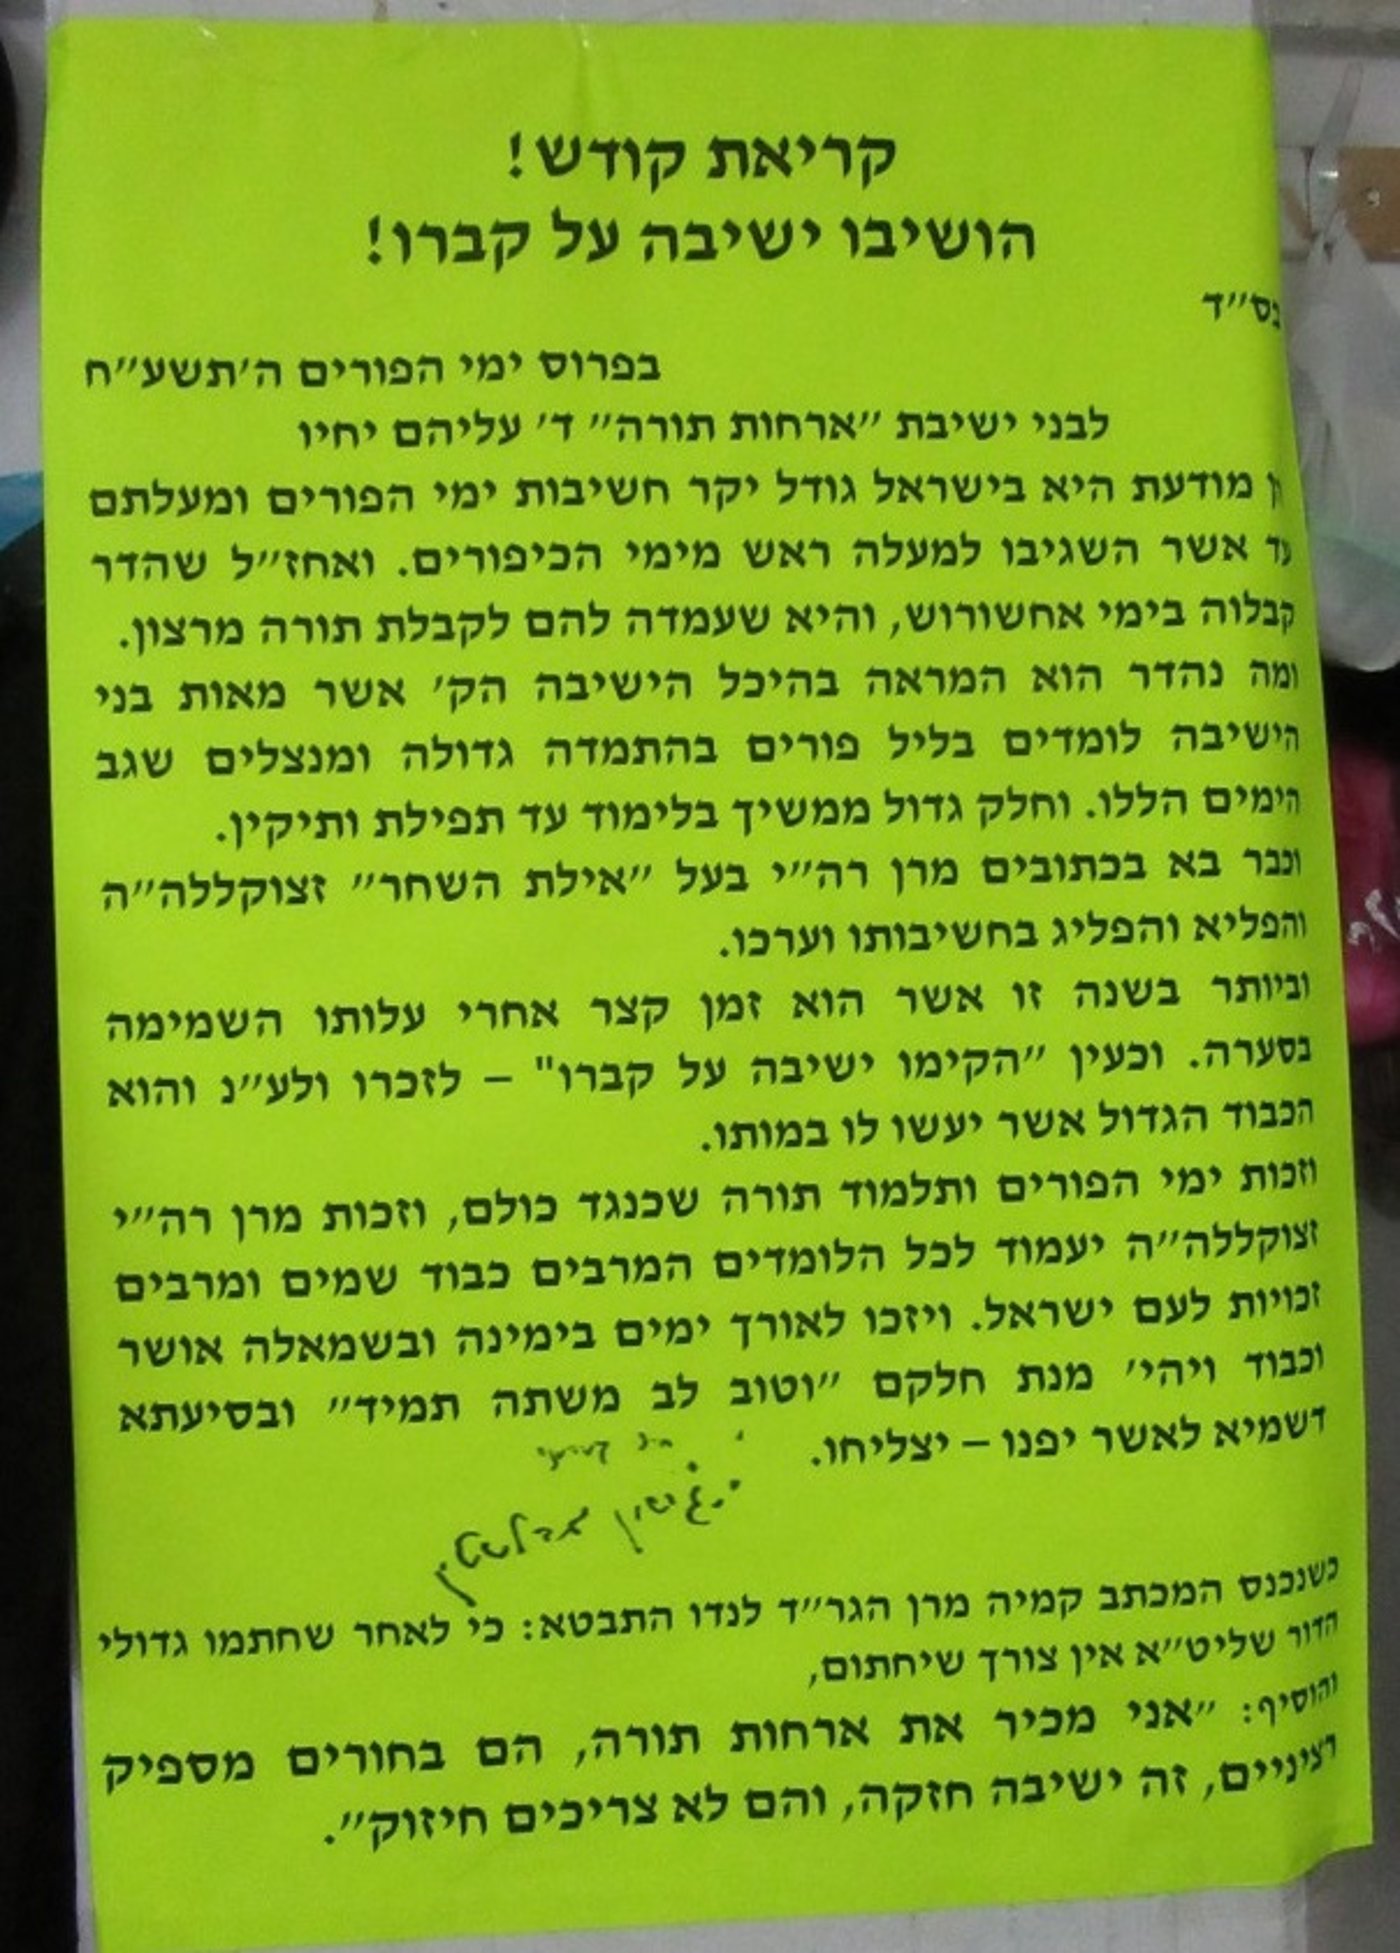 קריאת קודש!
הושיבו ישיבה על קברו!
בס״ד
בפרוס ימי הפורים ה׳תשע״ח
לבני ישיבת ״ארחות תורה״ ד׳ עליהם יחיו
הן מודעת היא בישראל גודל יקר חשיבות ימי הפורים ומעלתם
עד אשר השגיבו למעלה ראש מימי הכיפורים. ואחז״ל שהדר
קבלוה בימי אחשורוש, והיא שעמדה להם לקבלת תורה מרצון.
ומה נהדר הוא המראה בהיכל הישיבה הק׳ אשר מאות בני
הישיבה לומדים בליל פורים בהתמדה גדולה ומנצלים שגב
הימים הללו. וחלק גדול ממשיך בלימוד עד תפילת ותיקין.
וכבר בא בכתובים מרן רה״י בעל ״אילת השחר״ זצוקללה״ה
והפליא והפליג בחשיבותו וערכו.
וביותר בשנה זו אשר הוא זמן קצר אחרי עלותו השמימה
בסערה. וכעין ״הקימו ישיבה על קברו" – לזכרו ולע״נ והוא
הכבוד הגדול אשר יעשו לו במותו.
וזכות ימי הפורים ותלמוד תורה שכנגד כולם, וזכות מרן רה״י
זצוקללה״ה יעמוד לכל הלומדים המרבים כבוד שמים ומרבים
זכויות לעם ישראל. ויזכו לאורך ימים בימינה ובשמאלה אושר
וכבוד ויהי׳ מנת חלקם ״וטוב לב משתה תמיד״ ובסיעתא
דשמיא לאשר יפנו – יצליחו.
י. גרשון אדלשטין
כשנכנס המכתב קמיה מרן הגר״ד לנדו התבטא: כי לאחר שחתמו גדולי
הדור שליט״א אין צורך שיחתום,
והוסיף: ״אני מכיר את ארחות תורה, הם בחורים מספיק
רציניים, זה ישיבה חזקה, והם לא צריכים חיזוק״.